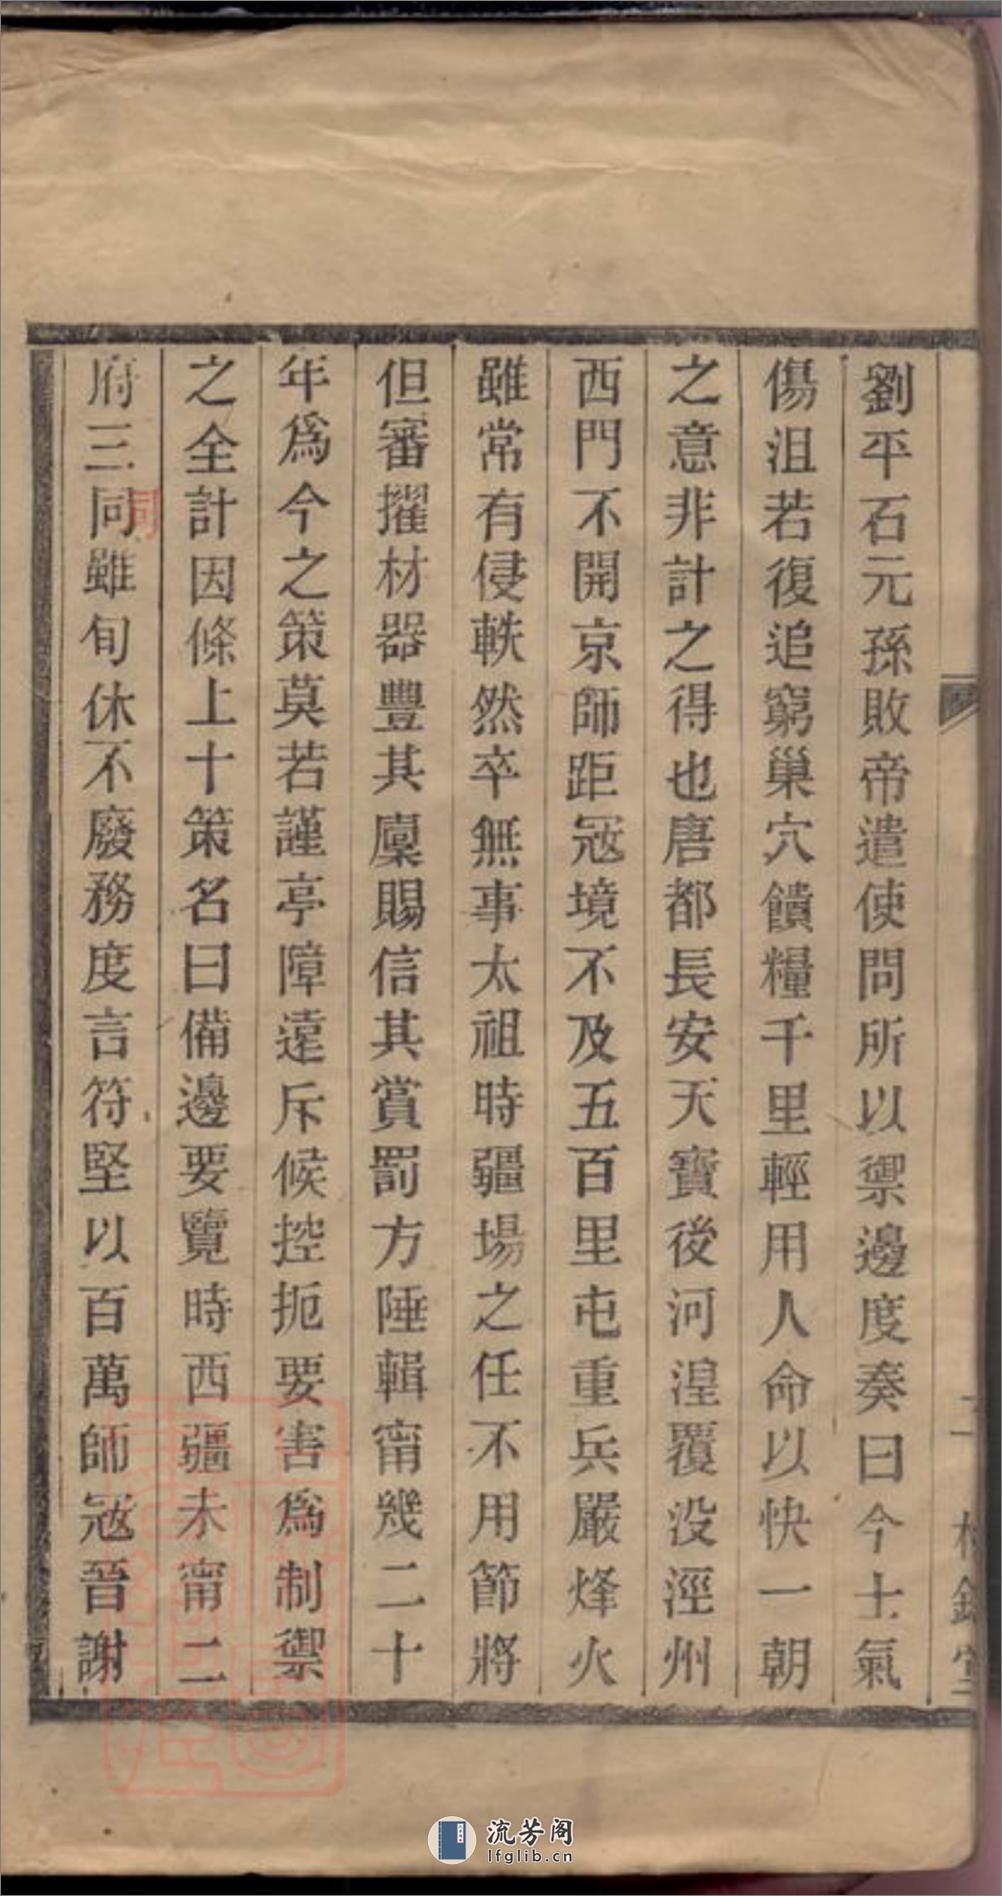 劉平石元孫敗帝遣使問所以禦邊度奏曰今士氣
傷沮若復追窮巢穴饋糧千里輕用人命以快一朝
之意非計之得也唐都長安天寶後河湟覆没涇州
西門不開京師距冦境不及五百里屯重兵嚴烽火
雖常有侵軼然卒無事太祖時疆場之任不用節將
但審擢材器豐其廩賜信其賞罰方陲輯甯幾二十
年爲今之策莫若謹亭障遠斥候控扼要害爲制禦
之全計因條上十策名曰備邊要覽時西疆未甯二
府三司雖旬休不廢務度言符堅以百萬師冦晉謝
流芳阁
lfglib.cn